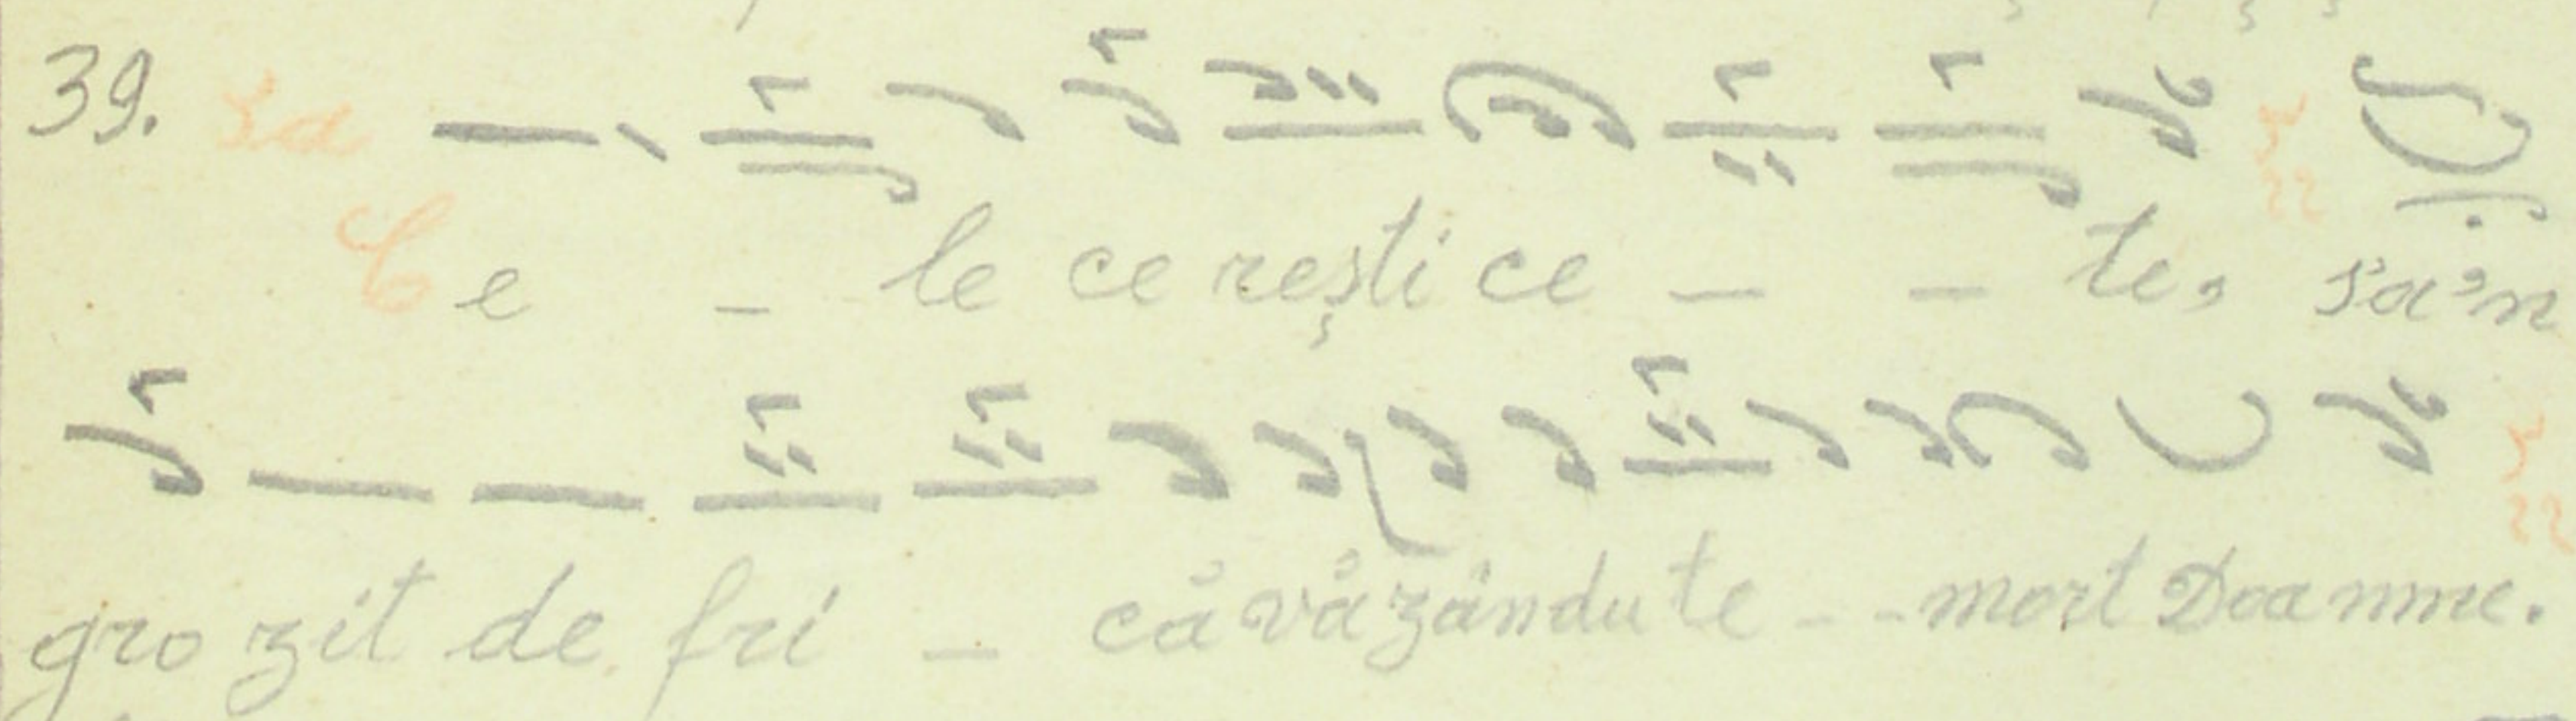 39. Ce - le ce rești ce - - te, s'a'n
gro zit de fri - că văzându te - - mort Doamne.